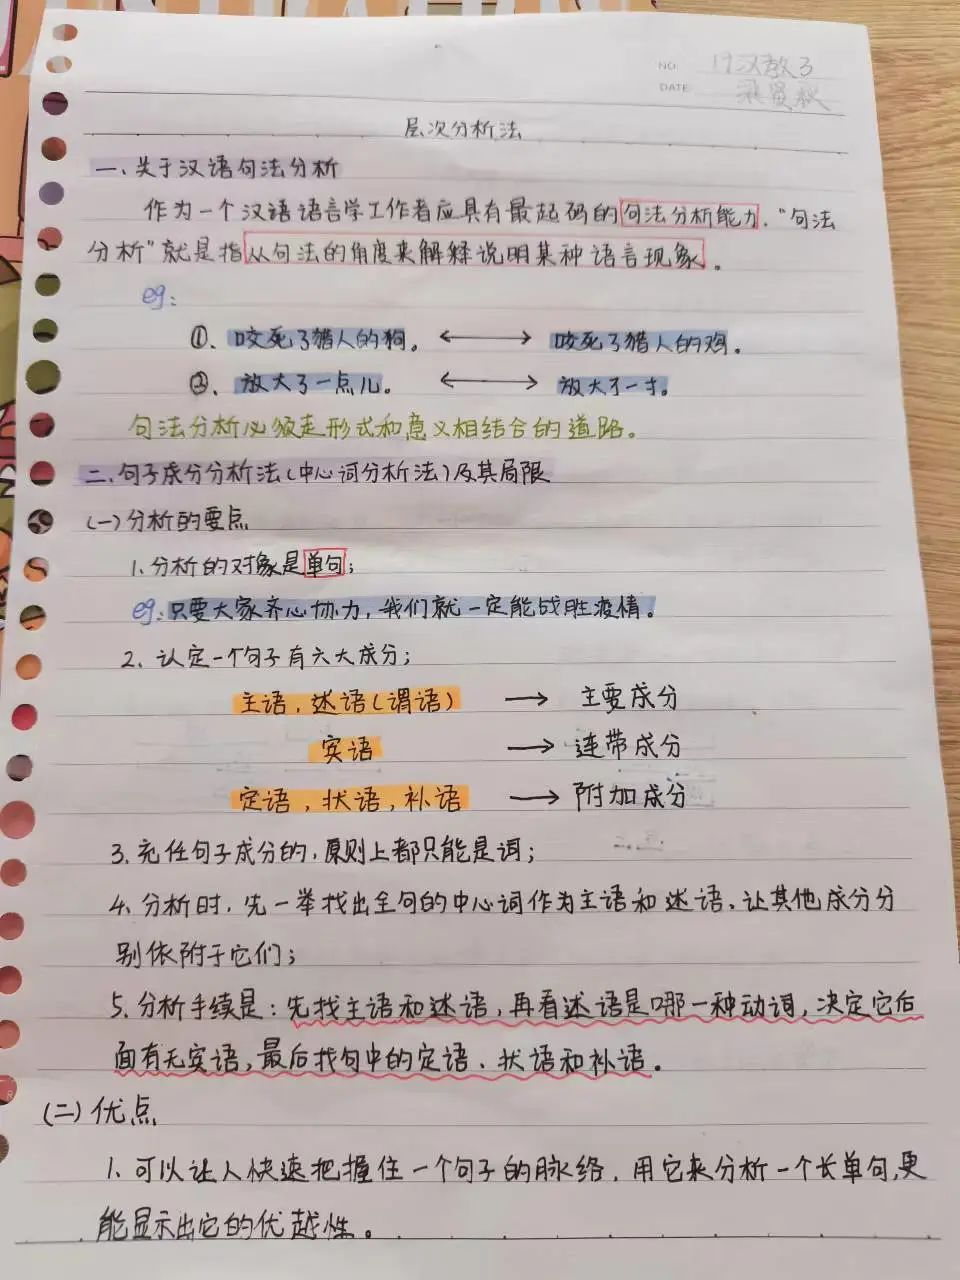 NO. 19汉教3
DATE 梁贤秋
层次分析法
一、关于汉语句法分析
作为一个汉语语言学工作者应具有最起码的句法分析能力．“句法
分析”就是指从句法的角度来解释说明某种语言现象。
eg:
①、咬死了猎人的狗。 ←→ 咬死了猎人的鸡。
②、放大了一点儿。 ←→ 放大了一寸。
句法分析必须走形式和意义相结合的道路。
二、句子成分分析法(中心词分析法)及其局限
(一)分析的要点
1.分析的对象是单句；
eg:只要大家齐心协力，我们就一定能战胜疫情。
2、认定一个句子有六大成分；
主语，述语(谓语) → 主要成分
宾语 → 连带成分
定语，状语，补语 → 附加成分
3、充任句子成分的，原则上都只能是词；
4、分析时，先一举找出全句的中心词作为主语和述语，让其他成分分
别依附于它们；
5、分析手续是：先找主语和述语，再看述语是哪一种动词，决定它后
面有无宾语，最后找句中的定语、状语和补语。
(二)优点
1、可以让人快速把握住一个句子的脉络，用它来分析一个长单句，更
能显示出它的优越性。